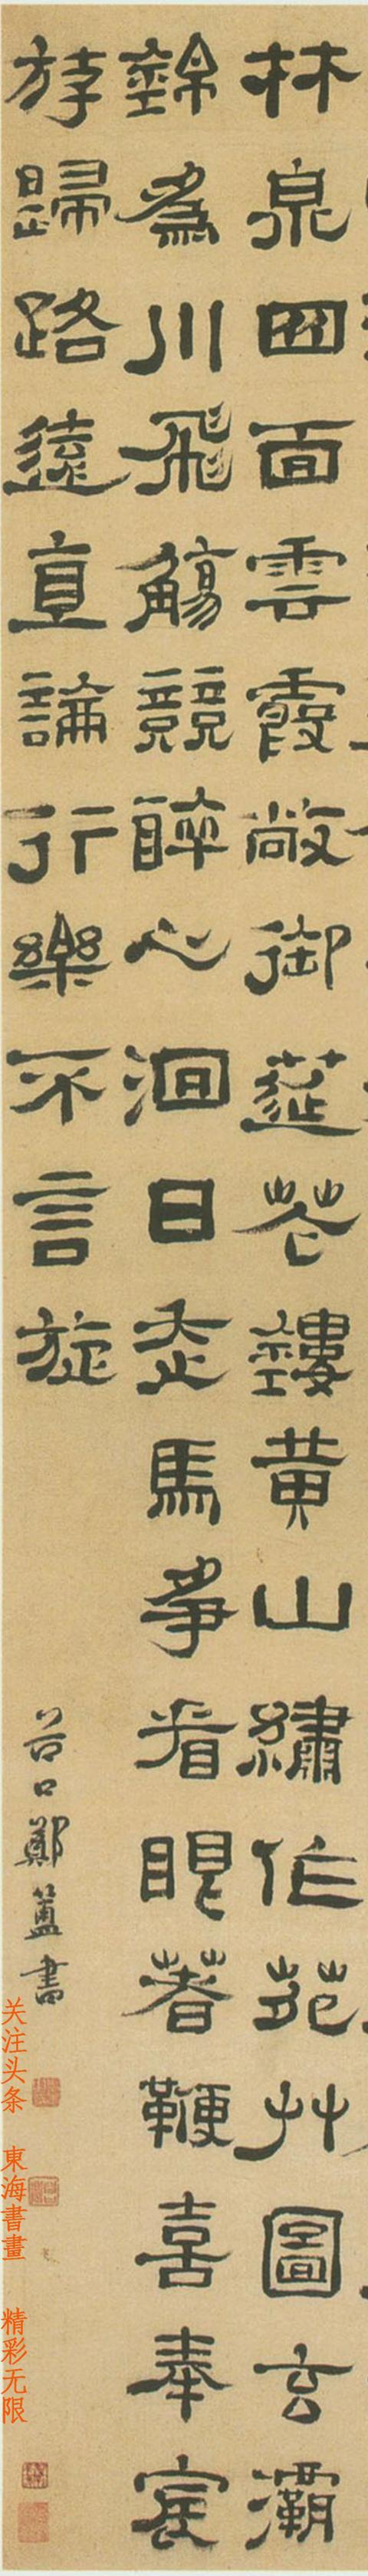 林泉四面雲霞敞御莚花鏤黃山繡作苑艸圖玄灞
錦為川飛觴競醉心洄日走馬爭看眼著鞭喜奉宸
斿歸路遠直論行樂不言旋
谷口鄭簠書
关注头条 東海書畫 精彩无限